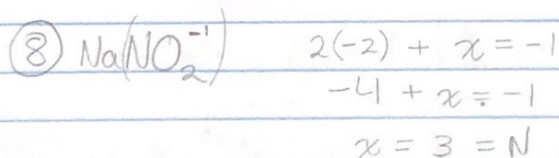 ⑧ Na(NO₂⁻¹) 2(-2) + x = -1
-4 + x = -1
x = 3 = N